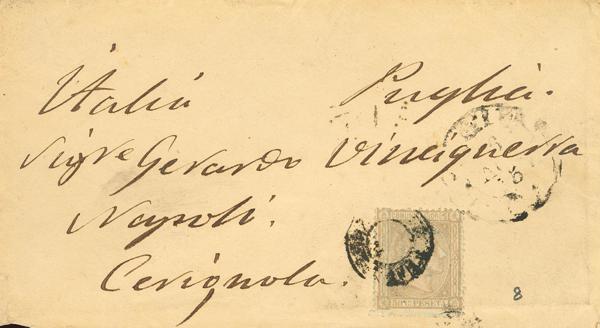 Italia Puglia.
Sigre Gerardo Vinciguerra
Napoli.
Cerignola.
PESETA
8